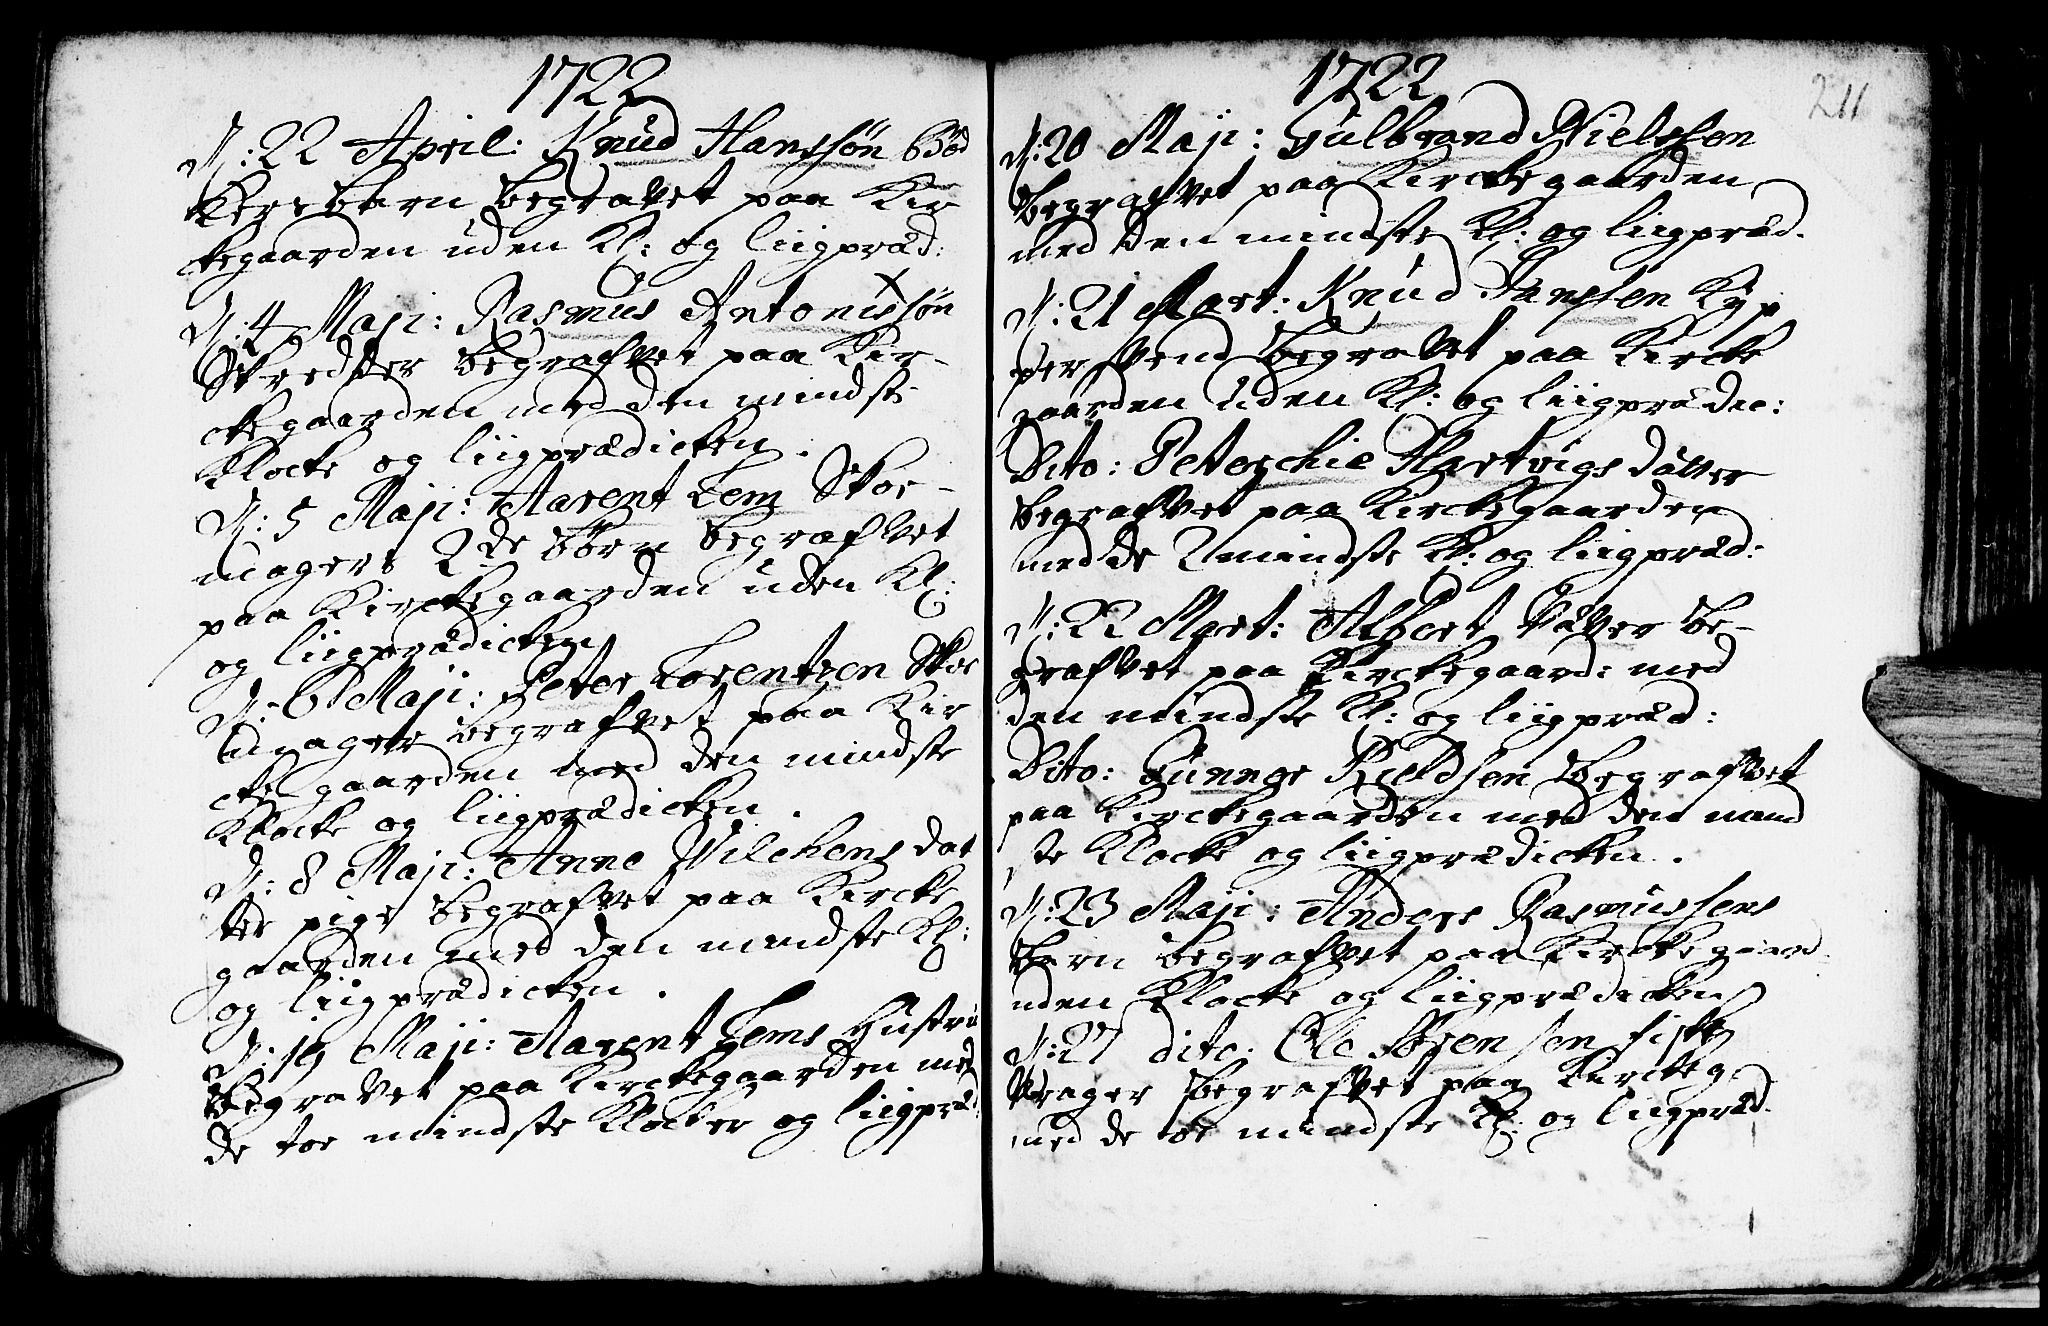 1722
D: 22 April: Knud Hanssøn Bød
kers barn begravet paa Kir
kegaarden uden Kl: og liigpræd:
D: 4 Maji: Rasmus Antonissøn
Skredder begrafvet paa Kir-
ckegaarden med den mindste
Klocke og liigprædicken.
D: 5 Maji: Aarent Lem Skoe-
magers 2de børn begrafvet
paa Kirckegaarden uden Kl:
og liigprædicken
D: 6 Maji: Peter Lorentzen Skoe
mager begrafvet paa Kir
ckegaarden med den mindste
Klocke og liigprædicken.
D: 8 Maji: Anne Wilchens dat
ter pige begrafvet paa Kircke
gaarden med den mindste Kl:
og liigprædicken.
D: 19 Maji: Aarent Lems Hustru
begravet paa Kirckegaarden med
de toe mindste Klocker og liigpræd:
1722
211
D: 20 Maji: Gulbrand Nielssen
begrafvet paa Kirckegaarden
med den mindste Kl: og liigpræd.
D: 21 Mart: Knud Hanssen Kyp
per svend begravet paa Kircke
gaarden uden Kl: og liigprædic:
Dito: Peterschie Hartvigs datter
begrafvet paa Kirckegaarden
med de 2 mindste Kl: og liigpræd:
D: 22 Mart: Albert be-
grafvet paa Kirckegaard: med
den mindste Kl: og liigpræd:
Dito: Gunner Kieldsen begrafvet
paa Kirckegaarden med den mind
ste Klocke og liigprædicken.
D: 23 Maji: Anders Rasmussens
barn begrafvet paa Kirckegaard
uden Klocke og liigprædicken
D: 27 dito: Ole Sørensen fiske
vrager begrafvet paa Kirckeg:
med de toe mindste Kl: og liigpræd.